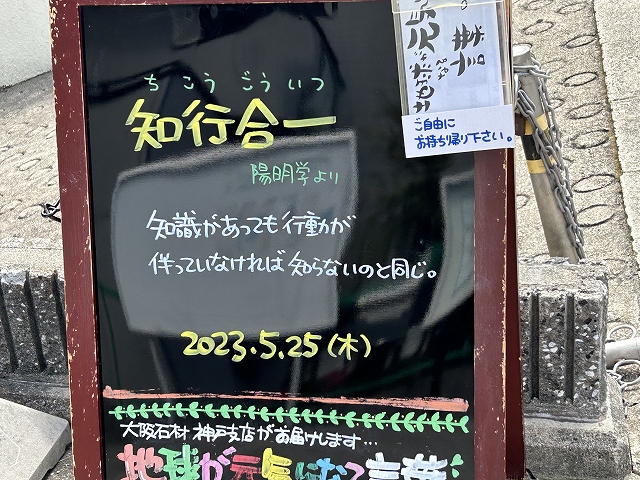 ちこうごういつ
知行合一
陽明学より
知識があっても行動が
伴っていなければ知らないのと同じ。
2023.5.25(木)
大阪石材 神戸支店がお届けします…
地球が元気になる言葉
ご自由に
お持ち帰り下さい。